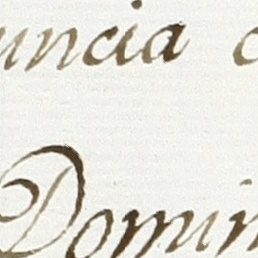 uncia c
Domin